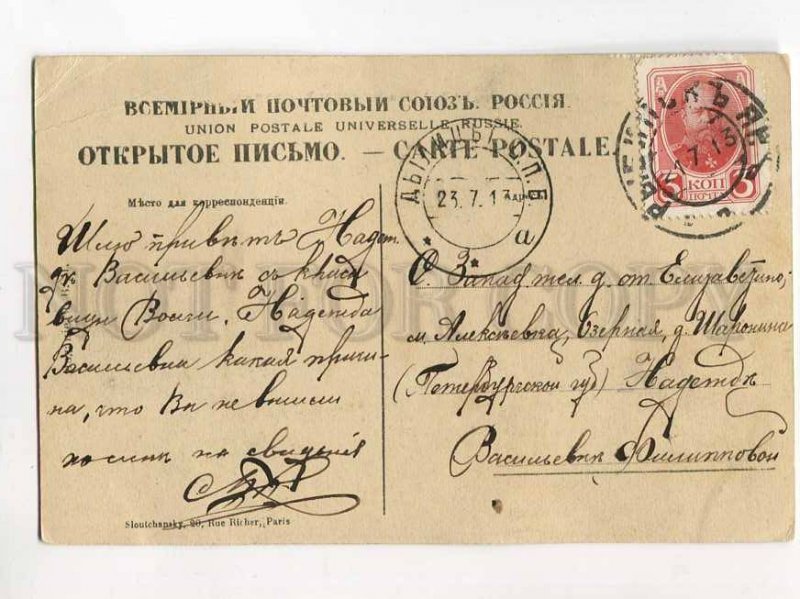 ВСЕМІРНЫЙ ПОЧТОВЫЙ СОЮЗЪ. РОССІЯ.
UNION POSTALE UNIVERSELLE. RUSSIE.
ОТКРЫТОЕ ПИСЬМО. — CARTE POSTALE.
Мѣсто для корреспонденціи.
Шлю привѣтъ Надеж
дѣ Васильевнѣ съ краси
выхъ Волги. Надежда
Васильевна какая причи-
на, что Вы не вышли
на свиданія
Sloutchansky, 20, Rue Richer, Paris
23.7.13
а
21.7.13
3 КОП 3
ПОЧТА
С. Запад. жел. д. от. Елизаветино,
м. Алексѣевка, Озерная, д. Шаронина
(Петербургской губ) Надеждѣ
Васильевнѣ Филипповой
NOT FOR COPY